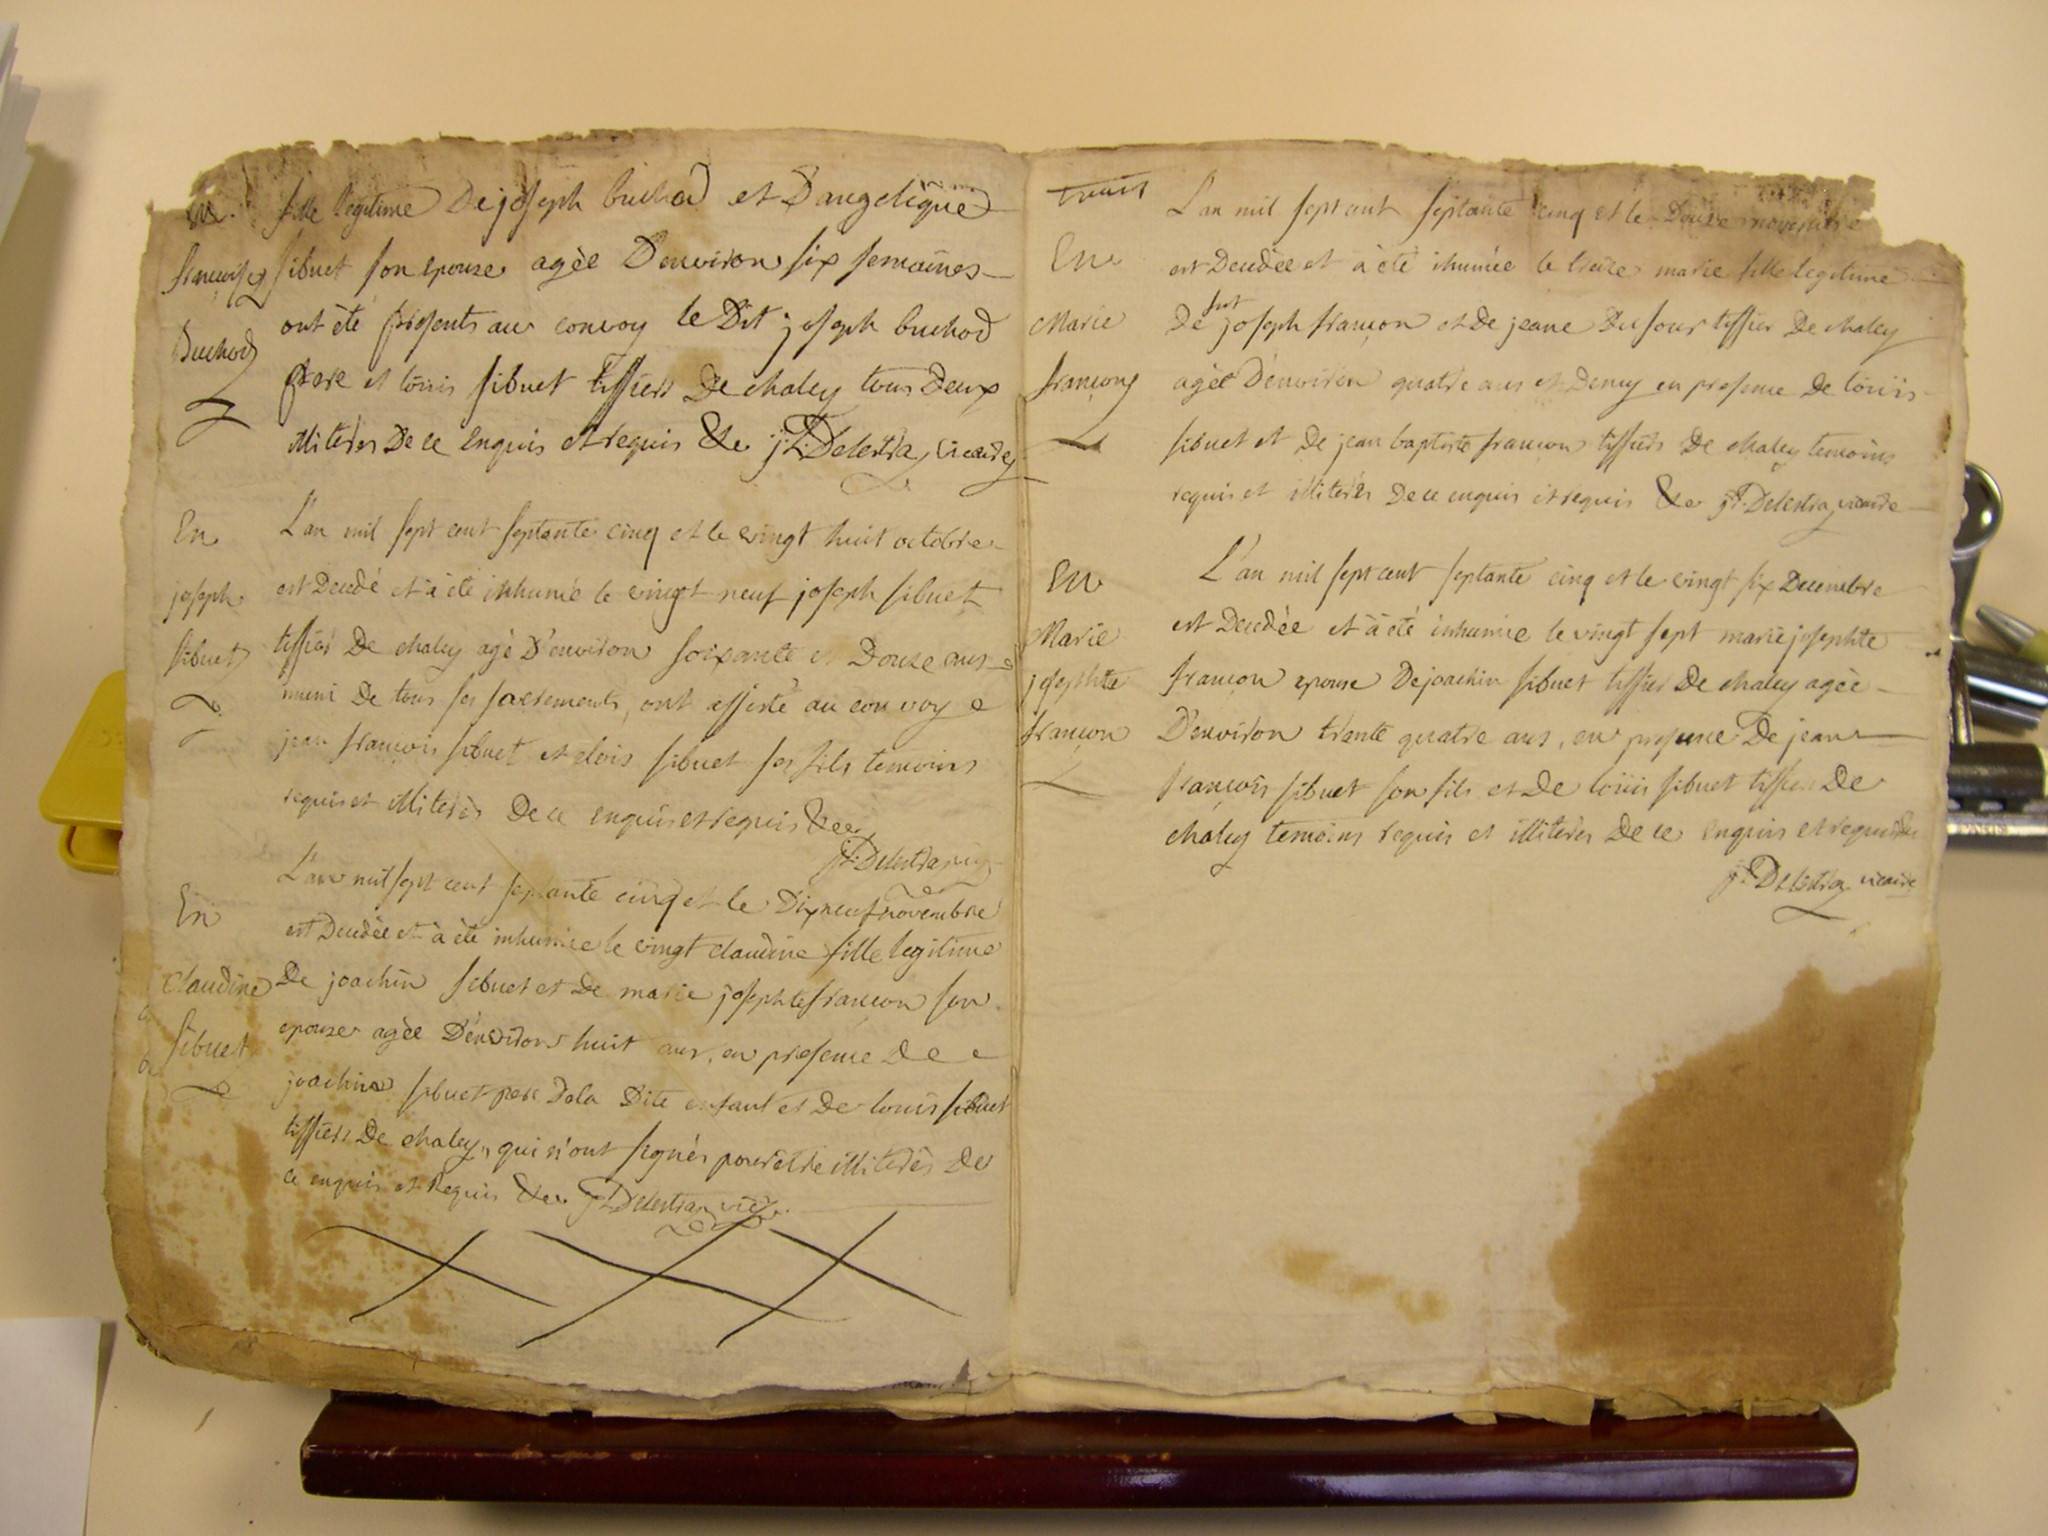 En
françoise
Buchod
fille legitime De joseph buchod et D'angelique
sibuet son epouze agèe D'environ six semaines
ont été présents au convoy le Dit joseph buchod
pere et loüis sibuet tissiers De chaley tous Deux
illiterés De ce enquis et requis &c j: Delestra, vicaire
En
joseph
sibuet
L'an mil sept cent septante cinq et le vingt huit octobre
est Decedé et à été inhumé le vingt neuf joseph sibuet
tissier De chaley agé D'environ soixante et Douze ans
muni De tous ses sacrements, ont assisté au convoy
jean françois sibuet et elois sibuet ses fils temoins
requis et illiterés De ce enquis et requis &c
j: Delestra vic
En
Claudine
sibuet
L'an mil sept cent septante cinq et le Dixneuf novembre
est Decedée et à été inhumée le vingt claudine fille legitime
De joachin sibuet et De marie josephte françon son
epouze agèe D'environ huit ans, en presence De
joachin sibuet pere Dela Dite enfant et De louis sibuet
tissiers De chaley, qui n'ont signés pour être illiterés De
ce enquis et Requis &c. j: Delestra vic.
En
Marie
françon
L'an mil sept cent septante cinq et le Douze novembre
est Decedée et à été ihumée le treize marie fille legitime
De fut joseph françon et De jeane Dufour tissier De chaley
agèe D'environ quatre ans et Demy en presence De loüis
sibuet et De jean baptiste françon tissiers De chaley temoins
requis et illiterés De ce enquis et requis &c j: Delestra, vicaire
En
Marie
josephte
françon
L'an mil sept cent septante cinq et le vingt six Decembre
est Decedée et à été inhumée le vingt sept marie josephte
françon epouse De joachin sibuet tissier De chaley agèe
D'environ trente quatre ans, en presence De jean
françois sibuet son fils et De loüis sibuet tissier De
chaley temoins requis et illiterés De ce enquis et requis &c
j: Delestra vicaire